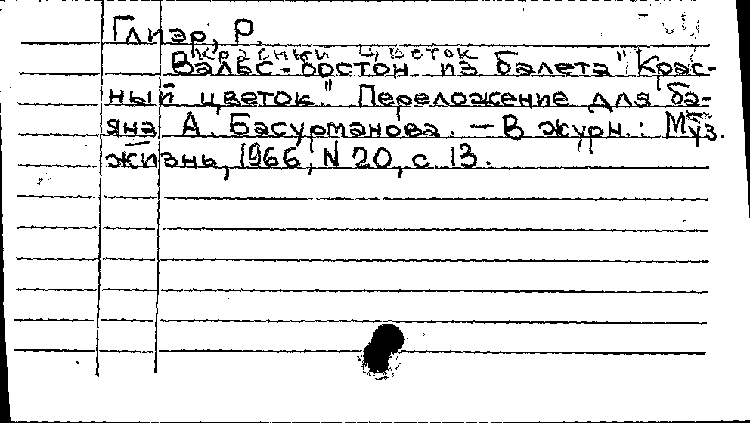 Глиэр, Р.
Красный цветок
Вальс-бостон из балета "Крас-
ный цветок". Переложение для ба-
яна А. Басурманова. — В журн.: Муз.
жизнь, 1966, N 20, с. 13.